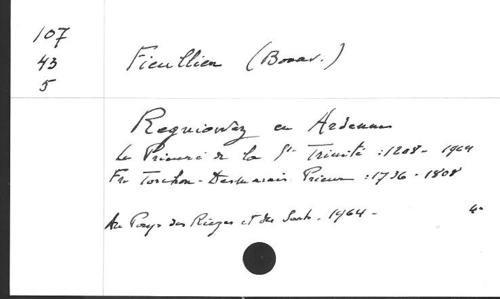 107
43
5
Fieullien (Bonav.)
Regniowez en Ardennes
Le Prieuré de la Ste Trinité : 1208 - 1964
Fr. Torchon-Desmarais Prieur : 1736 - 1808
Au Pays des Rièzes et des Sarts - 1964 -
4°